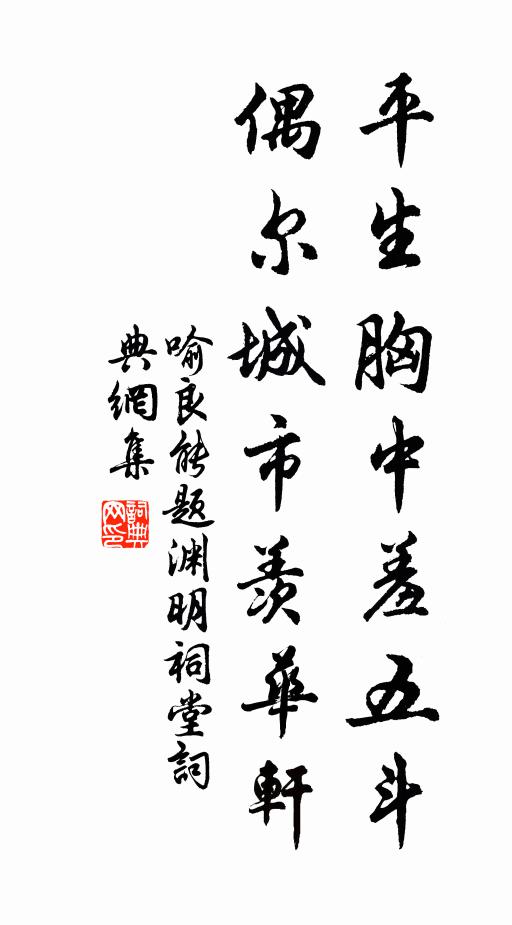 平生胸中羞五斗
偶尔城市羨華軒
喻良能題渊明祠堂詞
典網集
詞典网印